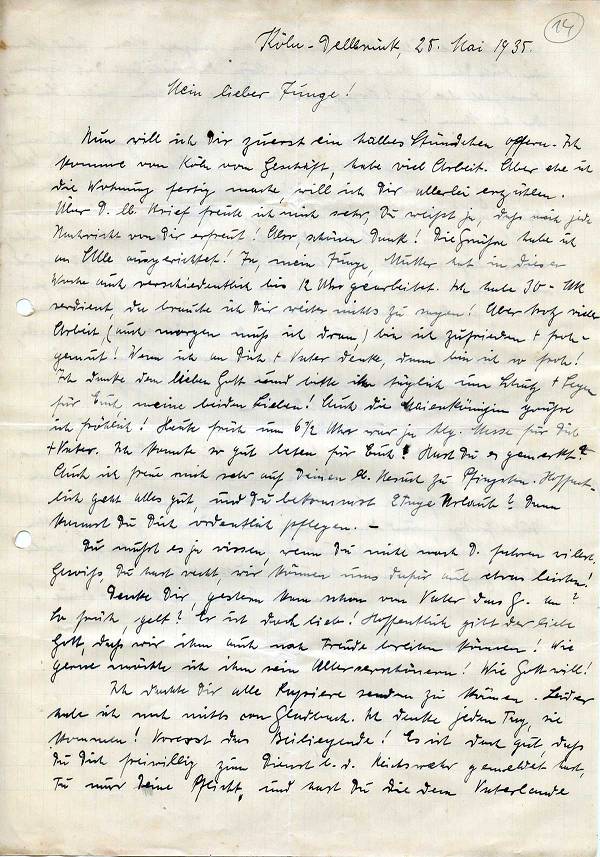 14
Köln-Dellbrück, 25. Mai 1935.
Mein lieber Junge!
Nun will ich Dir zuerst ein halbes Stündchen opfern. Ich
komme von Köln vom Geschäft, habe viel Arbeit. Aber ehe ich
die Wohnung fertig mache will ich Dir allerlei erzählen.
Über D. lb. Brief freute ich mich sehr, Du weißt ja, daß mich jede
Nachricht von Dir erfreut! Also, schönen Dank! Die Grüße habe ich
an Alle ausgerichtet! Ja, mein Junge, Mutter hat in dieser
Woche auch verschiedentlich bis 12 Uhr gearbeitet. Ich habe 30.- Mk
verdient, da brauche ich Dir weiter nichts zu sagen! Aber trotz viele
Arbeit, (auch morgen muß ich dran) bin ich zufrieden + froh-
gemut! Wenn ich an Dich + Vater denke, dann bin ich so froh!
Ich danke dem lieben Gott und bitte ihn täglich um Schutz + Segen
für Euch, meine beiden Lieben! Auch die Maienkönigin grüße
ich fröhlich! Heute früh um 6½ Uhr war ja hlg. Messe für Dich
+ Vater. Ich konnte so gut beten für Euch! Hast Du es gemerkt?
Auch ich freue mich sehr auf Deinen Besuch zu Pfingsten. Hoffent-
lich geht alles gut, und Du bekommst 2 Tage Urlaub? Dann
kannst Du Dich ordentlich pflegen. –
Du mußt es ja wissen, wenn Du nicht nach D. fahren willst.
Gewiß, Du hast recht, wir können uns dafür auch etwas leisten!
Denke Dir, gestern kam schon von Vater das G. an?
So früh, gelt? Er ist doch lieb! Hoffentlich gibt der liebe
Gott, daß wir ihm auch noch Freude bereiten können! Wie
gerne möchte ich ihm sein Alter verschönern! Wie Gott will!
Ich dachte Dir alle Papiere senden zu können. Leider
habe ich noch nichts von Gladbach. Ich denke jeden Tag, sie
kommen! Vorerst das Beiliegende! Es ist doch gut, daß
Du Dich freiwillig zum Dienst b. d. Reichswehr gemeldet hast,
Tu nur Deine Pflicht, und hast Du die dem Vaterlande